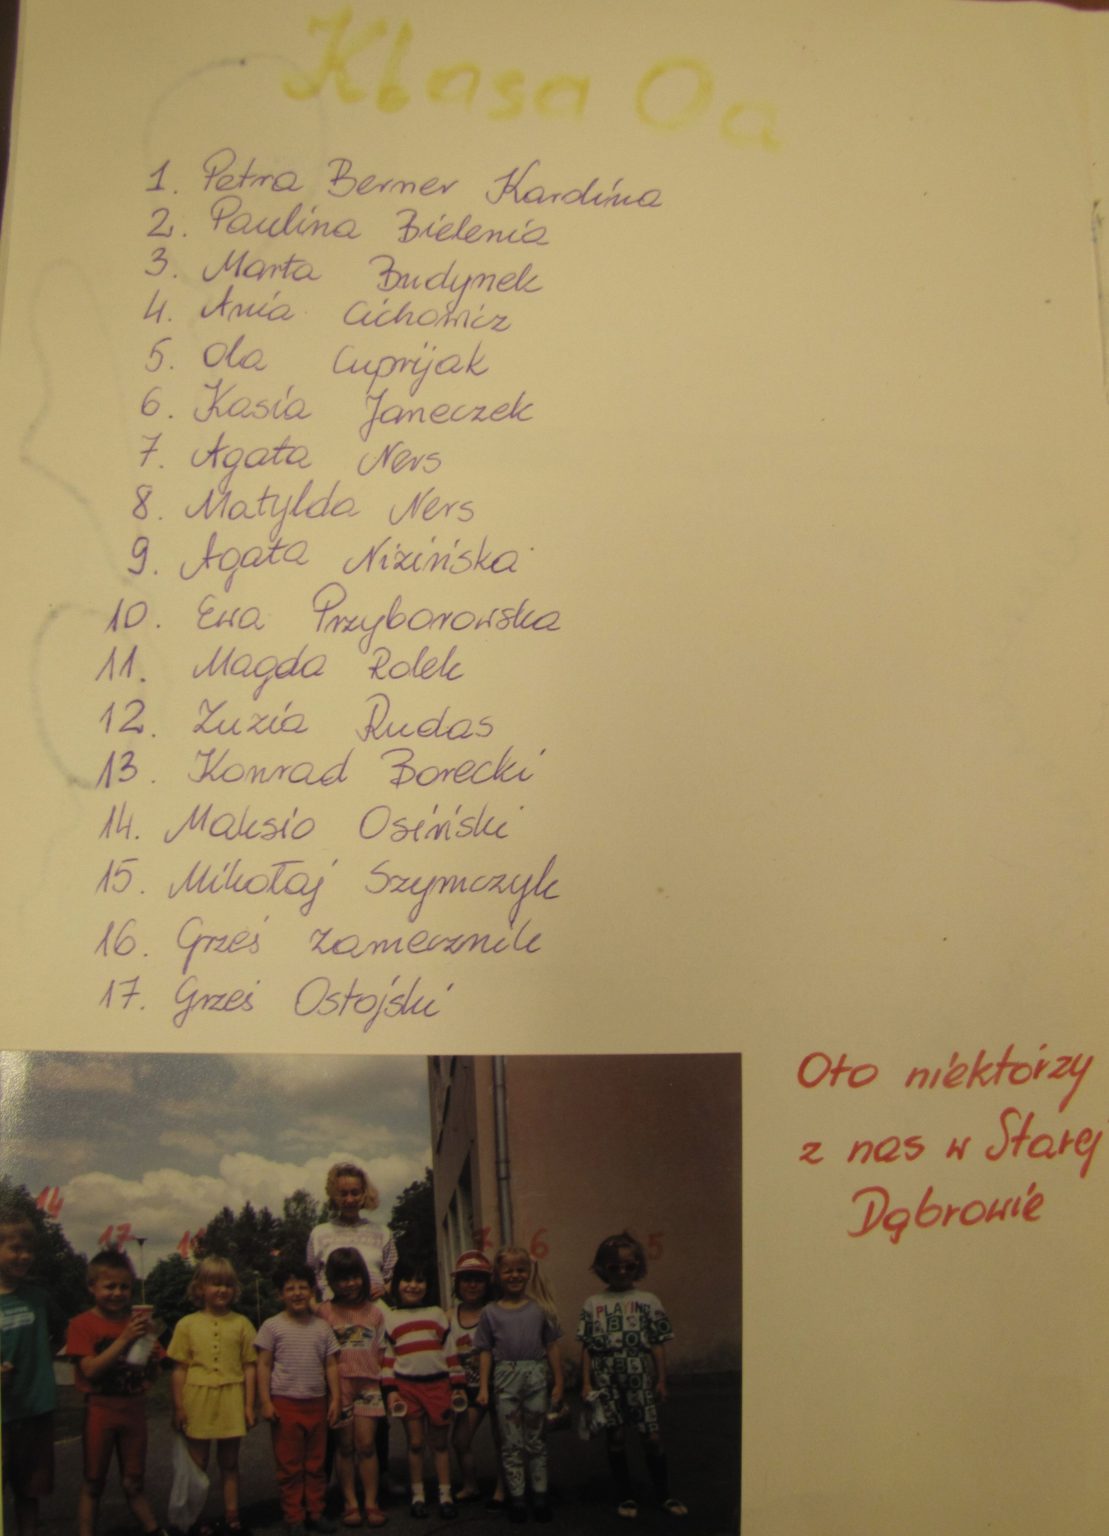 Klasa Oa
1. Petra Berner Kardina
2. Paulina Bielenia
3. Marta Budynek
4. Ania Cichowicz
5. Ola Cuprijak
6. Kasia Janeczek
7. Agata Ners
8. Matylda Ners
9. Agata Nizińska
10. Ewa Przyborowska
11. Magda Rolek
12. Zuzia Rudas
13. Konrad Borecki
14. Maksio Osiński
15. Mikołaj Szymczyk
16. Grześ Zamecznik
17. Grześ Ostojski
Oto niektórzy
z nas w Starej
Dąbrowie
14 17 7 6 5
PLAYIN